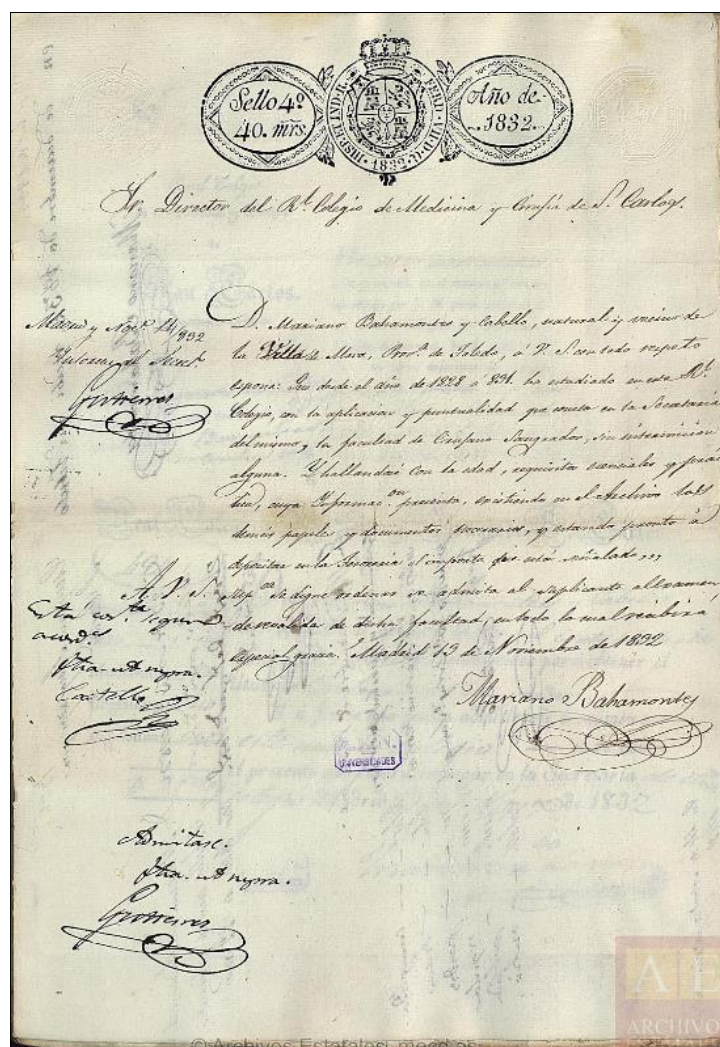 Sello 4º
40. mrs.
HISP. ET IND. R. FERD. VII. D. G. 1832
Año de
1832.
Sr. Director del Rl. Colegio de Medicina y Cirugía de Sn. Carlos.
Madrid y Nove. 14/832
Informe el Secret.
Gutierrez
D. Mariano Bahamontes y Cabello, natural y vecino de
la Villa de Mora, Prova. de Toledo, á V. S. con todo respeto
espone: Que desde el año de 1828 á 831. ha estudiado en este Rl.
Colegio, con la aplicacion y puntualidad que consta en la Secretaría
del mismo, la facultad de Cirujano Sangrador, sin intermision
alguna. Y hallandose con la edad, requisitos esenciales y prác
tica, cuya Informacon. presenta, existiendo en el Archivo los
demás papeles y documentos necesarios, y estando pronto á
depositar en la Tesorería el importe que está señalado,,,
A. V. S. Suppca. se digne ordenar se admita al suplicante al examen
de revalida de dicha facultad, en todo lo cual recibirá
especial gracia. Madrid 13 de Noviembre de 1832
Mariano Bahamontes
Está
fha. ut supra.
Castelló
UNIVERSIDADES
Admitase.
fha. ut supra.
Gutierrez
AE
ARCHIVOS
© Archivos Estatales, mecd.es